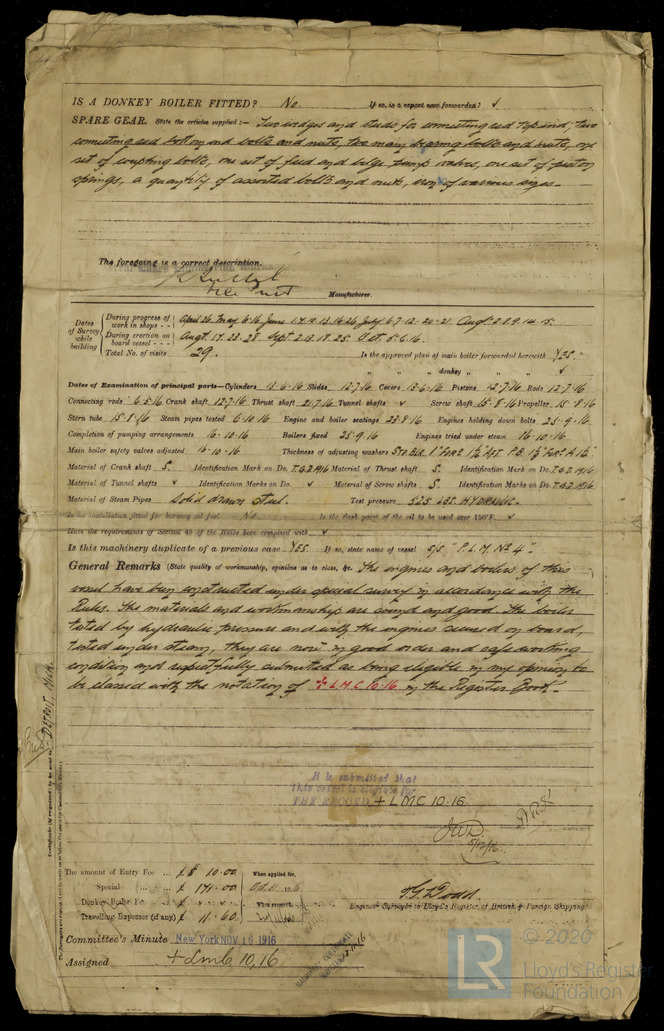 IS A DONKEY BOILER FITTED? No If so, is a report now forwarded? ✓
SPARE GEAR. State the articles supplied:— Two wedges and studs for connecting rod top end, two
connecting rod bottom end bolts and nuts, two main bearing bolts and nuts, one
set of coupling bolts, one set of feed and bilge pump valves, one set of piston
springs, a quantity of assorted bolts and nuts, iron of various sizes.—
The foregoing is a correct description.
Manufacturer.
Dates of Survey while building
During progress of work in shops - - April 26. May 6.16. June 1.7.10.13.16.26 July 6.7.12.20.21. Augt. 2.8.9.14.15.
During erection on board vessel - - - Augt. 17.23.28. Sept. 2.13.18.25. Oct.
Total No. of visits 29. Is the approved plan of main boiler forwarded herewith YES.
" " " donkey " " " ✓
Dates of Examination of principal parts—Cylinders 13-6-16 Slides 12-7-16 Covers 13-6-16 Pistons 12-7-16 Rods 12-7-16
Connecting rods 6-5-16 Crank shaft 12-7-16 Thrust shaft 21-7-16 Tunnel shafts ✓ Screw shaft 15-8-16 Propeller 15-8-16
Stern tube 15-8-16 Steam pipes tested 6-10-16 Engine and boiler seatings 23-8-16 Engines holding down bolts 25-9-16
Completion of pumping arrangements 16-10-16 Boilers fixed 25-9-16 Engines tried under steam 16-10-16
Main boiler safety valves adjusted 16-10-16 Thickness of adjusting washers
Material of Crank shaft S. Identification Mark on Do. T.G.D. 1916 Material of Thrust shaft S. Identification Mark on Do. T.G.D. 1916
Material of Tunnel shafts ✓ Identification Marks on Do. ✓ Material of Screw shafts S. Identification Marks on Do. T.G.D. 1916
Material of Steam Pipes Solid drawn steel. Test pressure 525 LBS. HYDRAULIC.
Is an installation fitted for burning oil fuel No Is the flash point of the oil to be used over 150°F. ✓
Have the requirements of Section 49 of the Rules been complied with ✓
Is this machinery duplicate of a previous case YES If so, state name of vessel S/S "P.L.M. No 4".
General Remarks (State quality of workmanship, opinions as to class, &c. The engines and boilers of this
vessel have been constructed under special survey in accordance with the
Rules. The materials and workmanship are sound and good. The boilers
tested by hydraulic pressure and with the engines secured on board,
tested under steam, they are now in good order and safe working
condition and respectfully submitted as being eligible in my opinion to
be classed with the notation of + LMC 10-16 in the Register Book.—
It is submitted that
this vessel is eligible for
THE RECORD + LMC 10.16
JWD
5/12/16
The amount of Entry Fee ... £ $ 10.00 When applied for,
Special ... £ 174.00
Donkey Boiler Fee ... £ When received,
Travelling Expenses (if any) £ 11.60
T.G. Dodd
Engineer Surveyor to Lloyd's Register of British & Foreign Shipping.
Committee's Minute New York NOV 16 1916
Assigned + LMC 10,16
LR
© 2020
Lloyd's Register
Foundation